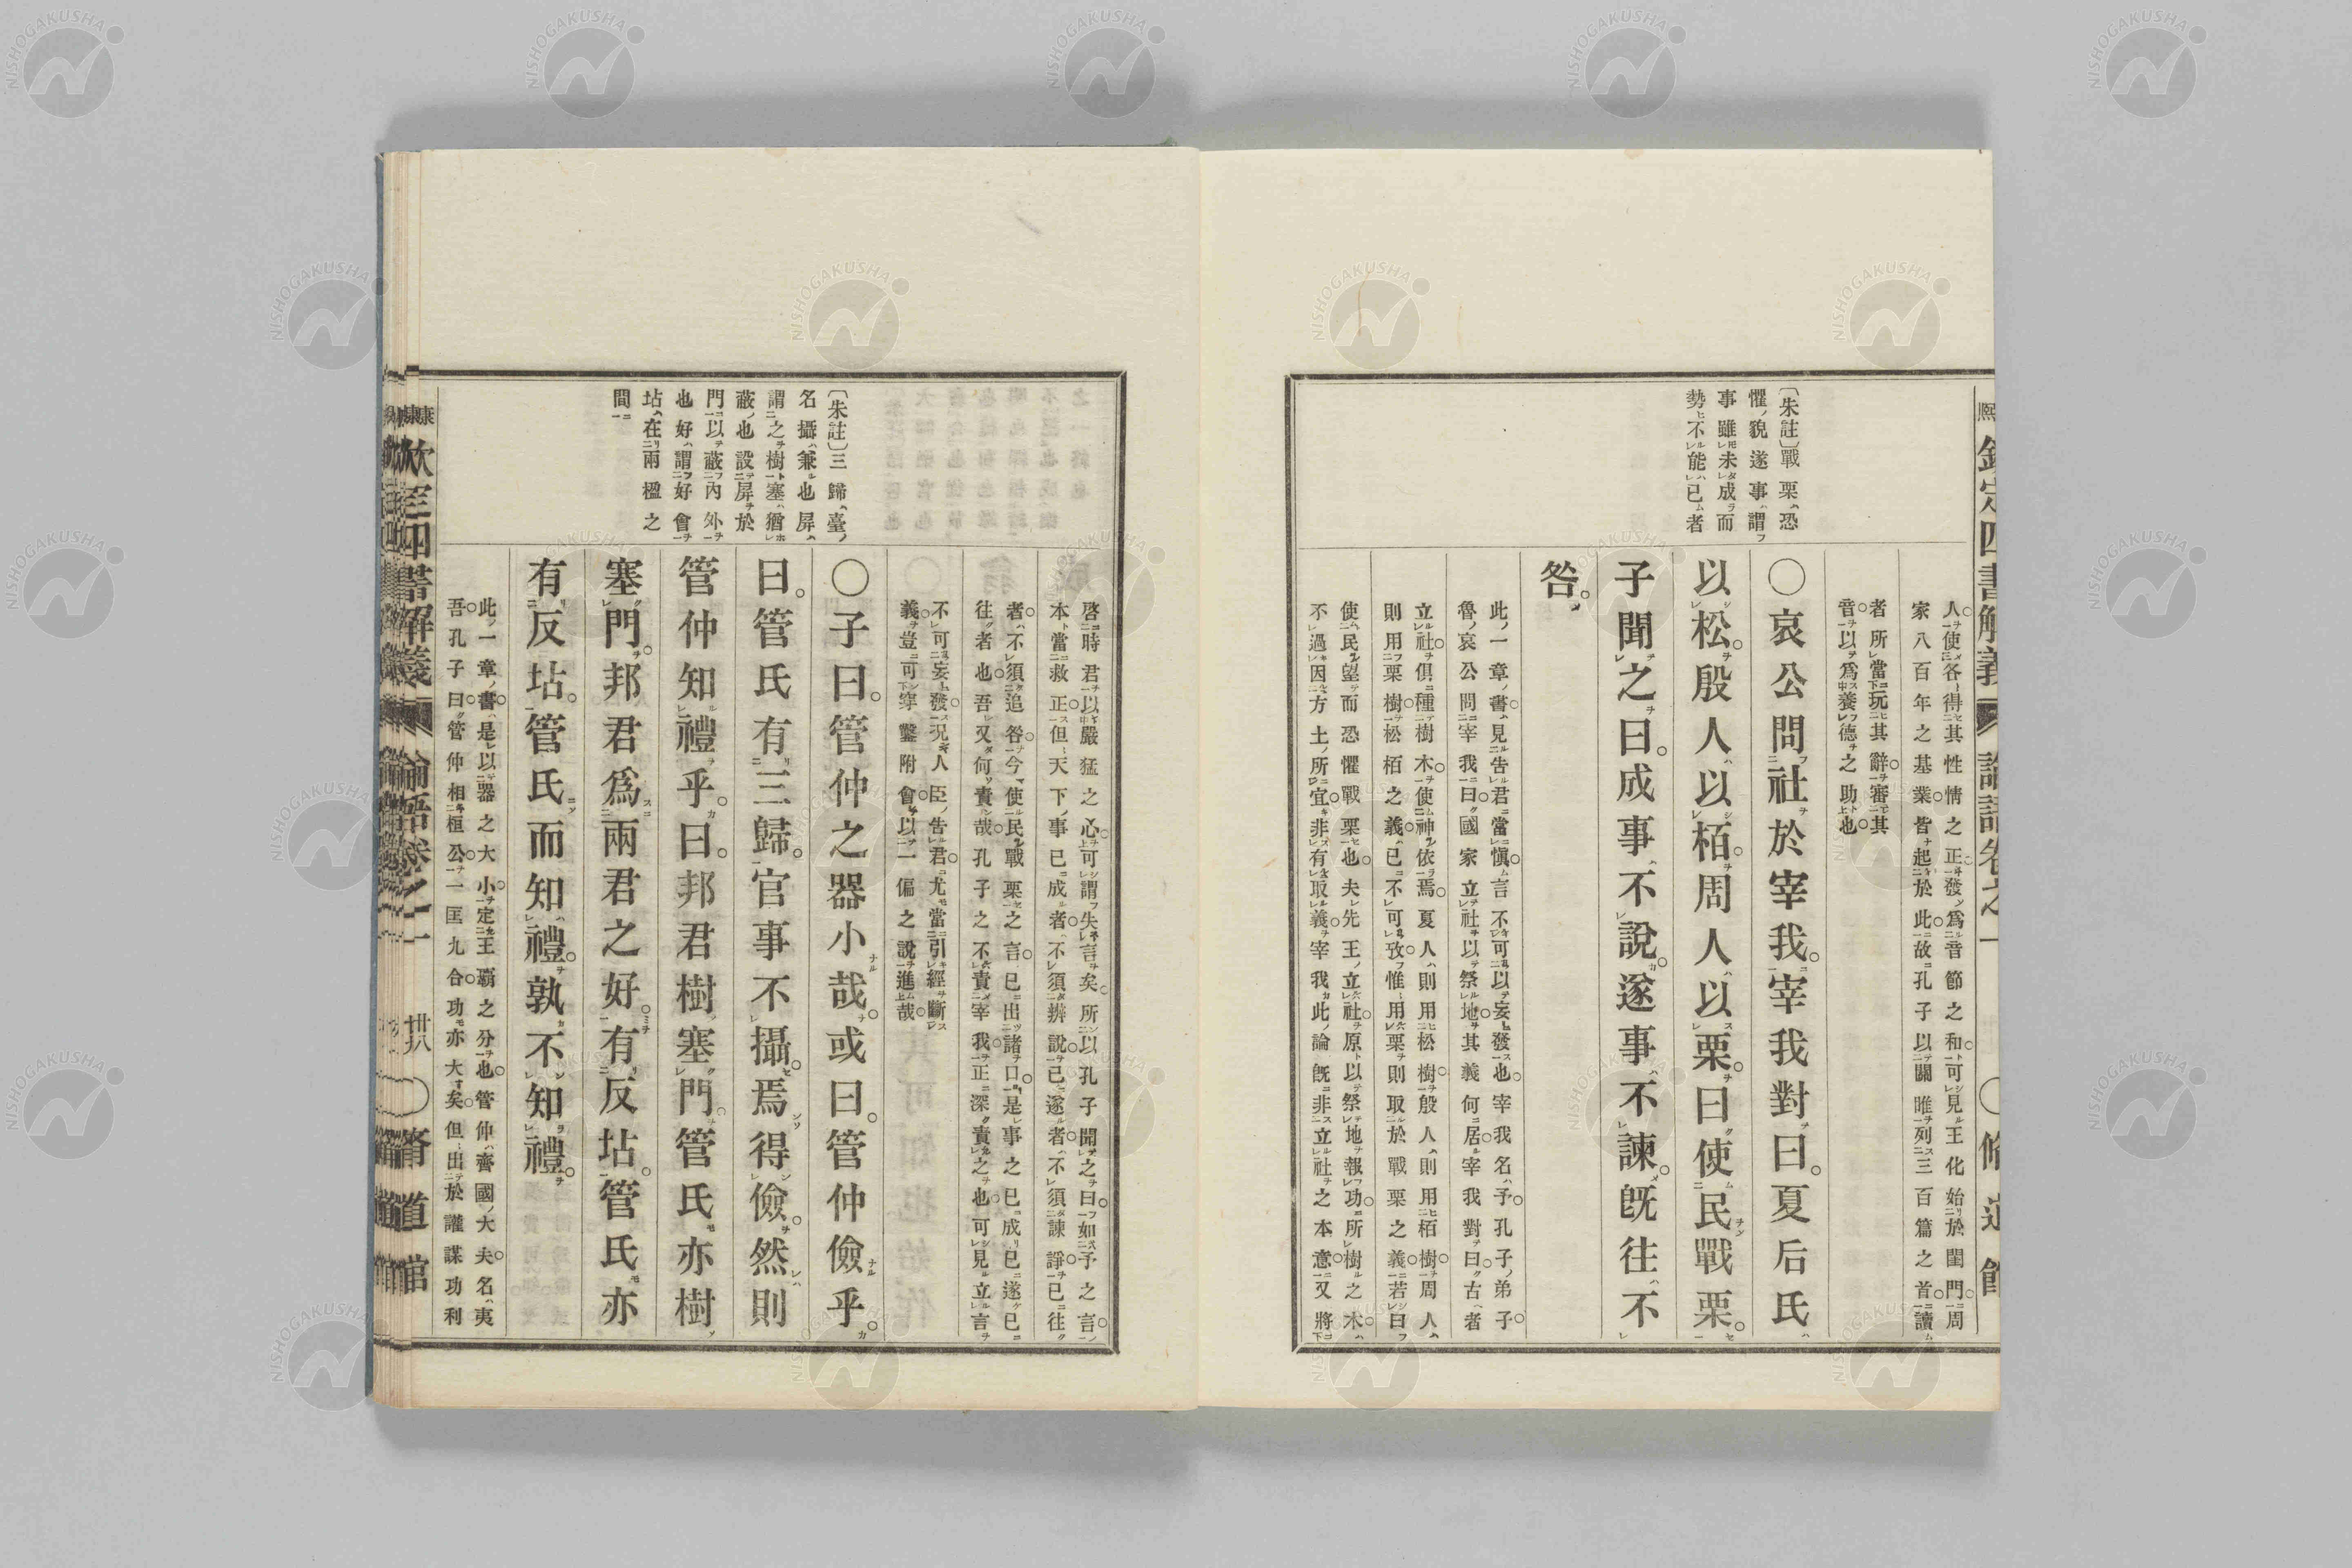 人使各得其性情之正發爲音節之和可見王化始於閨門周
家八百年之基業皆起於此故孔子以關雎列三百篇之首讀
者所當玩其辭審其
音以爲養德之助也
〔朱註〕戰栗恐
懼貌遂事謂
事雖未成而
勢不能已者
〇哀公問社於宰我宰我對曰夏后氏
以松殷人以栢周人以栗曰使民戰栗
子聞之曰成事不說遂事不諫既往不
咎
此一章書見告君當愼言不可以妄發也宰我名予孔子弟子
魯哀公問宰我曰國家立社以祭地其義何居宰我對曰古者
立社俱種樹木使神依焉夏人則用松樹殷人則用栢樹周人
則用栗樹松栢之義已不可攷惟用栗則取於戰栗之義若曰
使民望而恐懼戰栗也夫先王立社原以祭地報功所樹之木
不過因方土所宜非有取義宰我此論既非立社之本意又將
啓時君以嚴猛之心可謂失言矣所以孔子聞之曰如予之言
本當救正但天下事已成者不須辨說已遂者不須諫諍已往
者不須追咎今使民戰栗之言已出諸口是事之已成已遂已
往者也吾又何責哉孔子之不責宰我正深責之也可見立言
不可妄發況人臣告君尤當引經斷
義豈可穿鑿附會以一偏之說進哉
〔朱註〕三歸臺
名攝兼也屏
謂之樹塞猶
蔽也設屏於
門以蔽內外
也好謂好會
坫在兩楹之
間
〇子曰管仲之器小哉或曰管仲儉乎
曰管氏有三歸官事不攝焉得儉然則
管仲知禮乎曰邦君樹塞門管氏亦樹
塞門邦君爲兩君之好有反坫管氏亦
有反坫管氏而知禮孰不知禮
此一章書是以器之大小定王覇之分也管仲齊國大夫名夷
吾孔子曰管仲相桓公一匡九合功亦大矣但出於謹謀功利
欽定四書解義 論語卷之一 廿八 〇脩道館